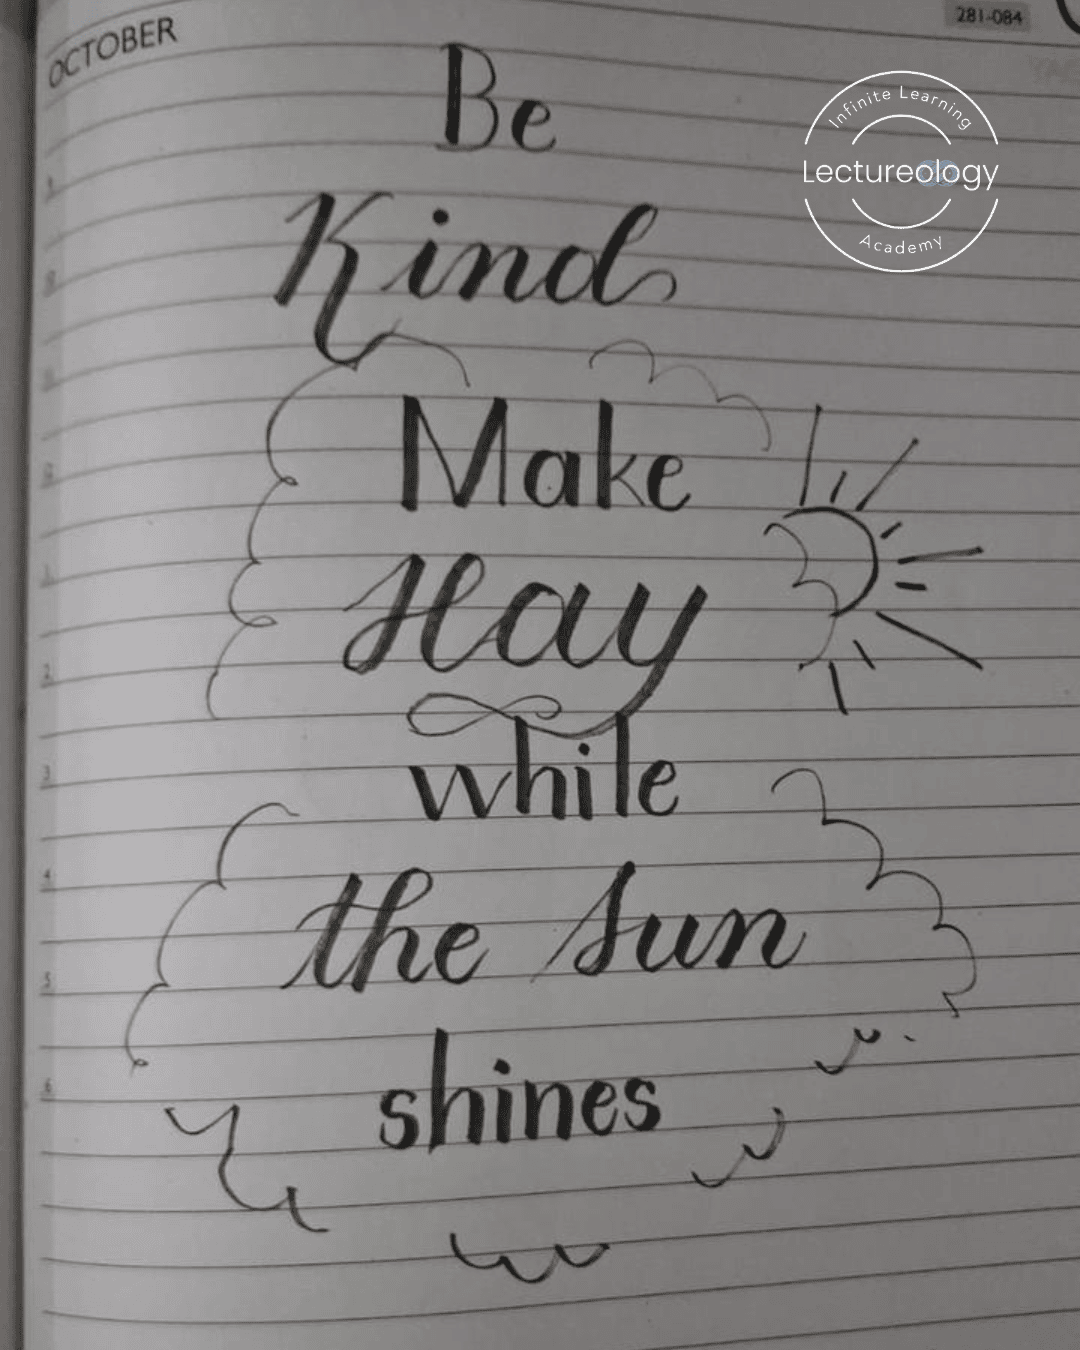 OCTOBER
281-084
Infinite Learning
Lectureology
Academy
Be
Kind
Make
Hay
while
the Sun
shines
1
2
3
4
5
6